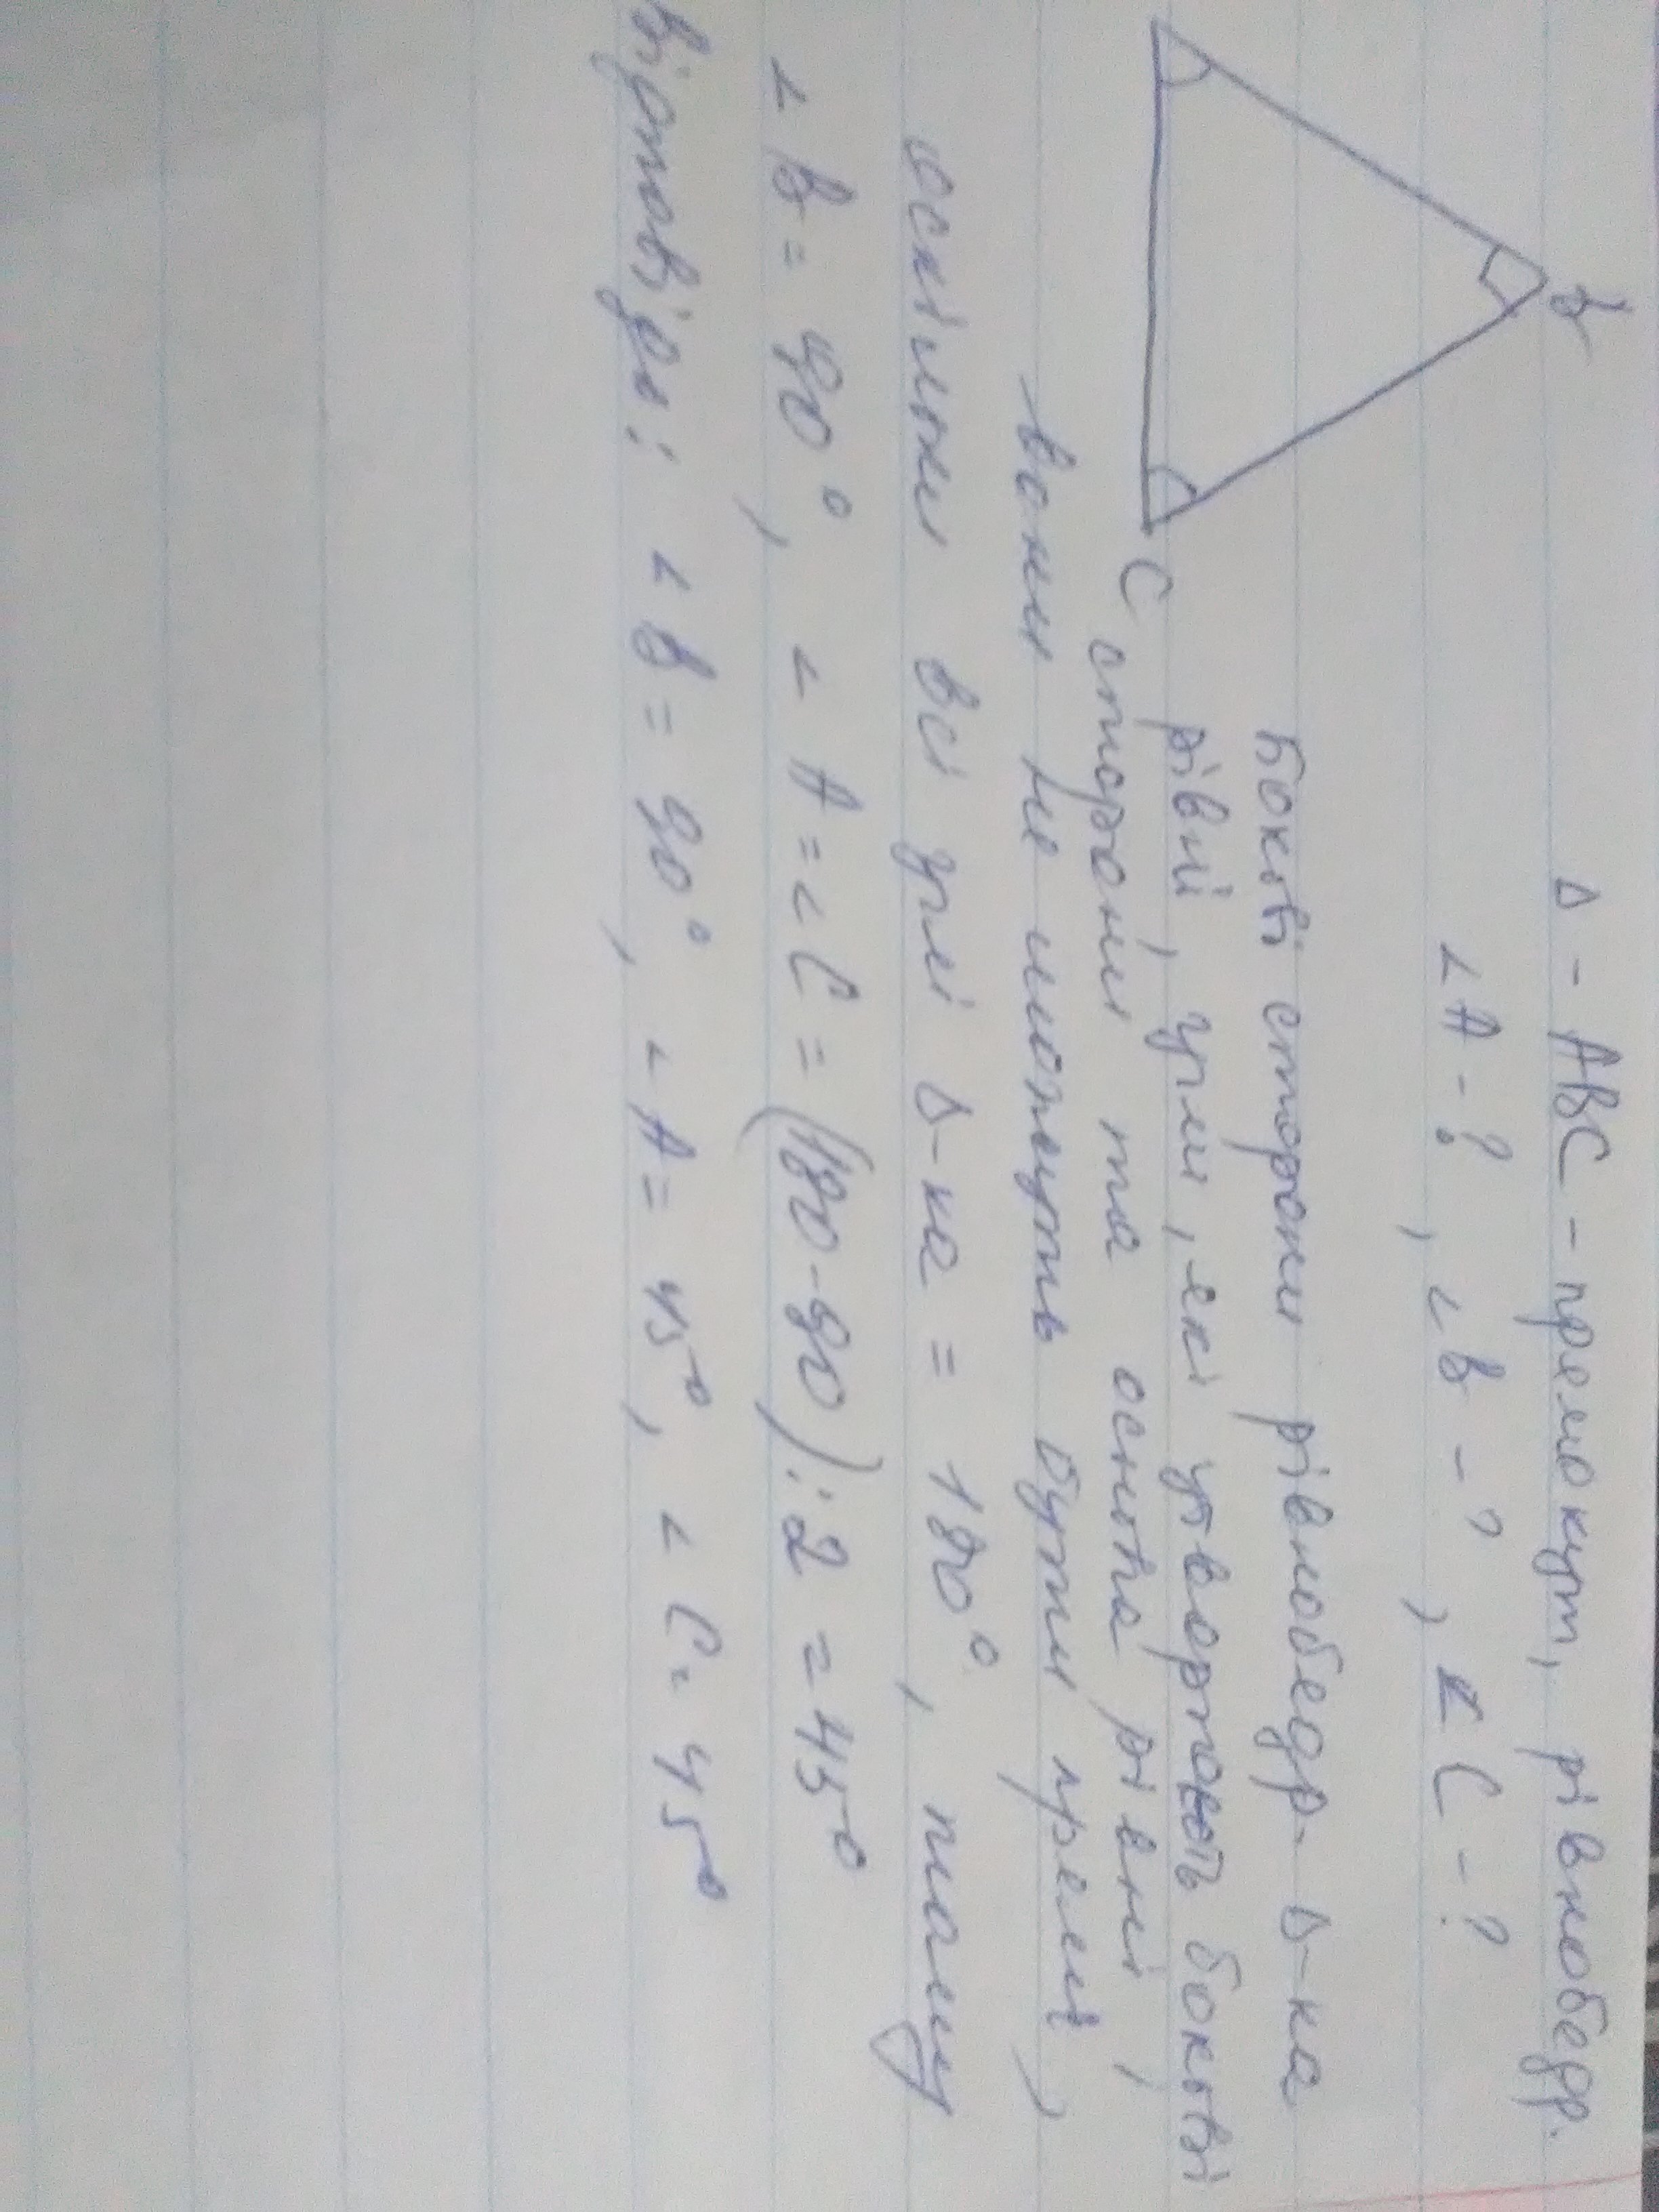 Δ - ABC - прямокут, рівнобедр.
∠A - ?, ∠B - ?, ∠C - ?
B
C
Бокові сторони рівнобедр. Δ-ка
рівні, угли, які утворюють бокові
сторони та основа рівні,
вони не можуть бути прямі,
оскільки всі углі Δ-ка = 180°, тому
∠B = 90°, ∠A = ∠C = (180-90):2 = 45°
Відповідь: ∠B = 90°, ∠A = 45°, ∠C = 45°